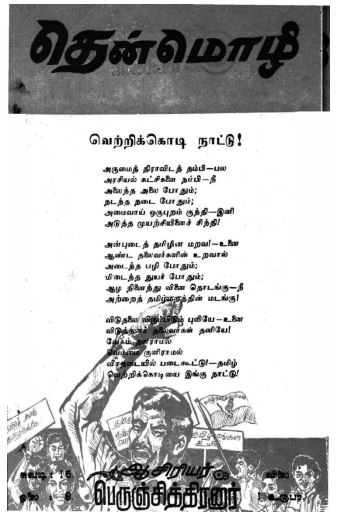 தென்மொழி
வெற்றிக்கொடி நாட்டு!
அருமைத் திராவிடத் தம்பி—பல
அரசியல் கட்சிகளை நம்பி—நீ
அலைந்த அலை போதும்;
நடந்த நடை போதும்;
அமைவாய் ஒருபுறம் குந்தி—இனி
அடுத்த முயற்சியினைச் சிந்தி!
அன்புடைத் தமிழின மறவ!—உனை
ஆண்ட தலைவர்களின் உறவால்
அடைந்த பழி போதும்;
மிடைந்த துயர் போதும்;
ஆழ நினைந்து வினை தொடங்கு—நீ
அற்றைத் தமிழ்மறத்தின் மடங்கு!
விடுதலை விரும்பிடும் புலியே—உனை
விடுத்தனர் தலைவர்கள் தனியே!
வேகம் தளராமல்
வெம்மை குளிராமல்
விரைநடையில் படைகூட்டு!—தமிழ்
வெற்றிக்கொடியை இங்கு நாட்டு!
சுவடி : 16
ஓலை : 6
ஆசிரியர்
பெருஞ்சித்திரனார்
விலை
1 உருபா